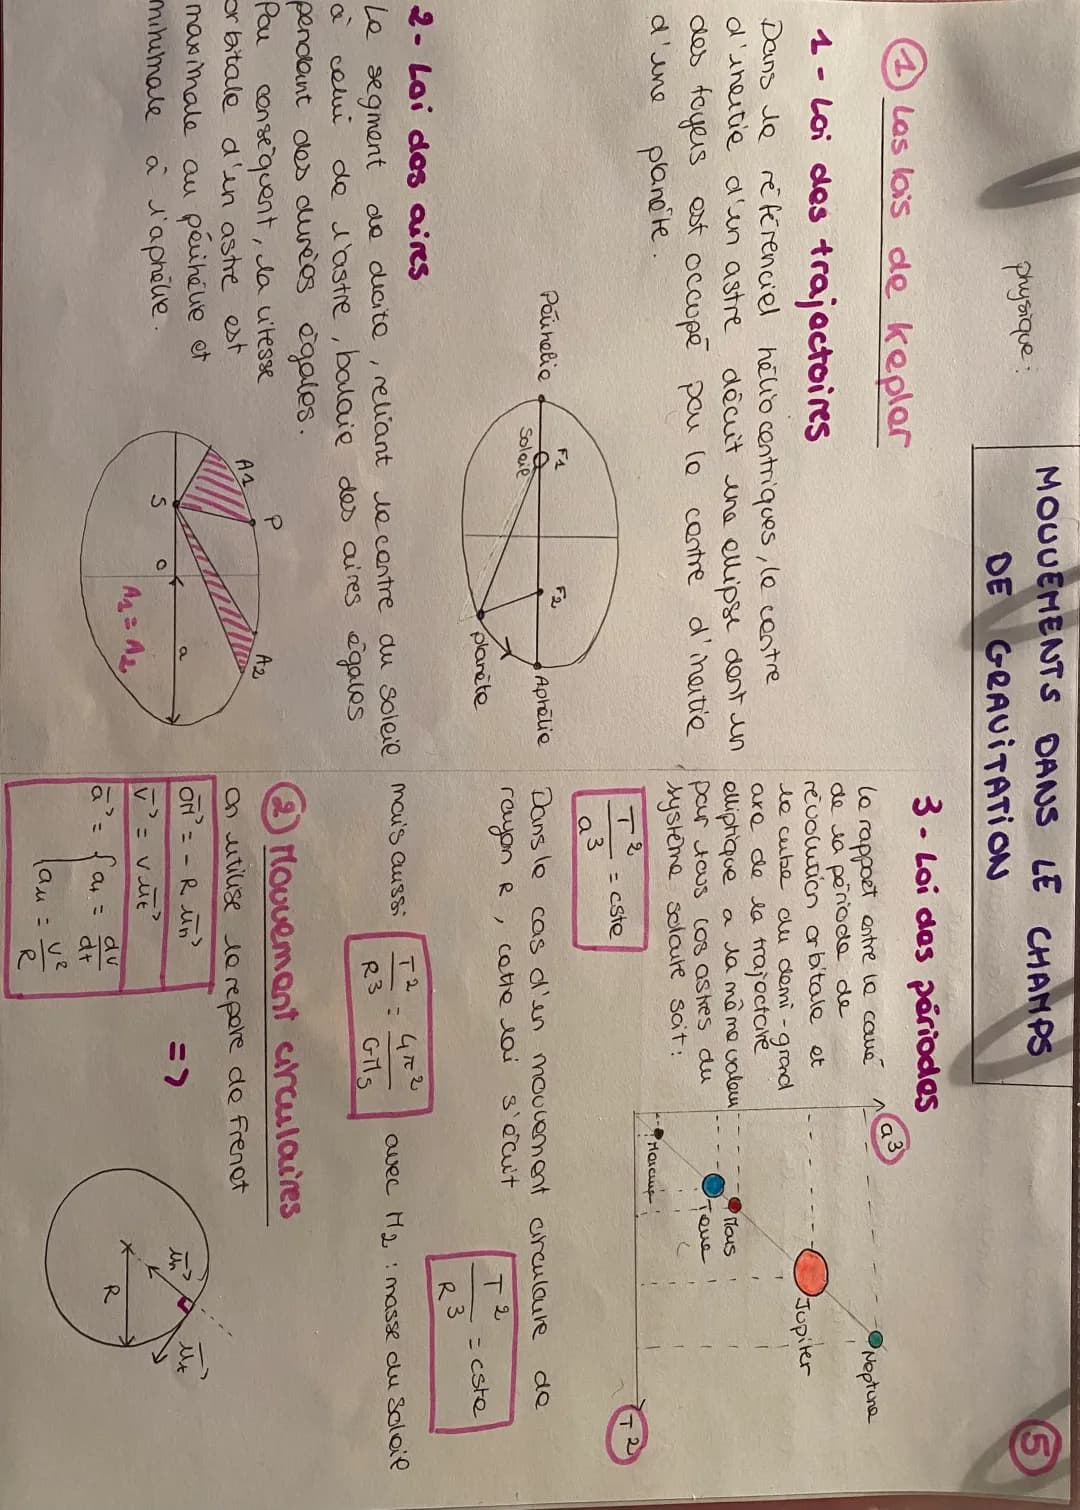 physique :
MOUVEMENTS DANS LE CHAMPS
DE GRAVITATION
5
1 Les lois de kepler
1 - Loi des trajectoires
Dans le référenciel héliocentriques, le centre
d'inertie d'un astre décrit une ellipse dont un
des foyers est occupé par le centre d'inertie
d'une planète.
Périhélie
F1
Soleil
F2
Aphélie
planète
2 - Loi des aires
Le segment de droite, reliant le centre du soleil
à celui de l'astre, balaie des aires égales
pendant des durées égales.
Par conséquent, la vitesse
orbitale d'un astre est
maximale au périhélie et
minimale à l'aphélie.
A1
P
A2
S
O
a
A1 = A2
3 - Loi des périodes
Le rapport entre le carré
de la période de
révolution orbitale et
le cube du demi-grand
axe de la trajectoire
elliptique a la même valeur
pour tous les astres du
système solaire soit :
T²/a³ = cste
a³
Neptune
Jupiter
Mars
Terre
Mercure
T²
Dans le cas d'un mouvement circulaire de
rayon R, cette loi s'écrit
T²/R³ = cste
mais aussi T²/R³ = 4π²/GMs avec M2 : masse du soleil
2 Mouvement circulaires
on utilise le repère de Frenet
OM→ = - R un→
v→ = v ut→
a→ = { at = dv/dt
an = v²/R
=>
un→
ut→
R